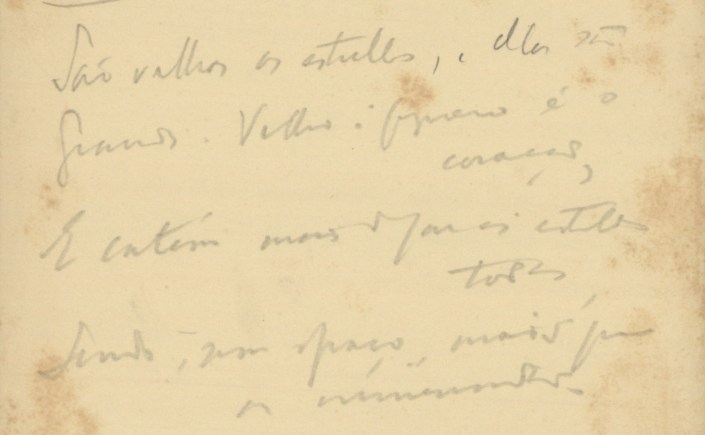 São velhas as estrellas, e ellas são
Grandes. Velho e pequeno é o
coração,
E contém mais do que as estrellas
todas,
Sendo, sem espaço, maior que
a immensidão